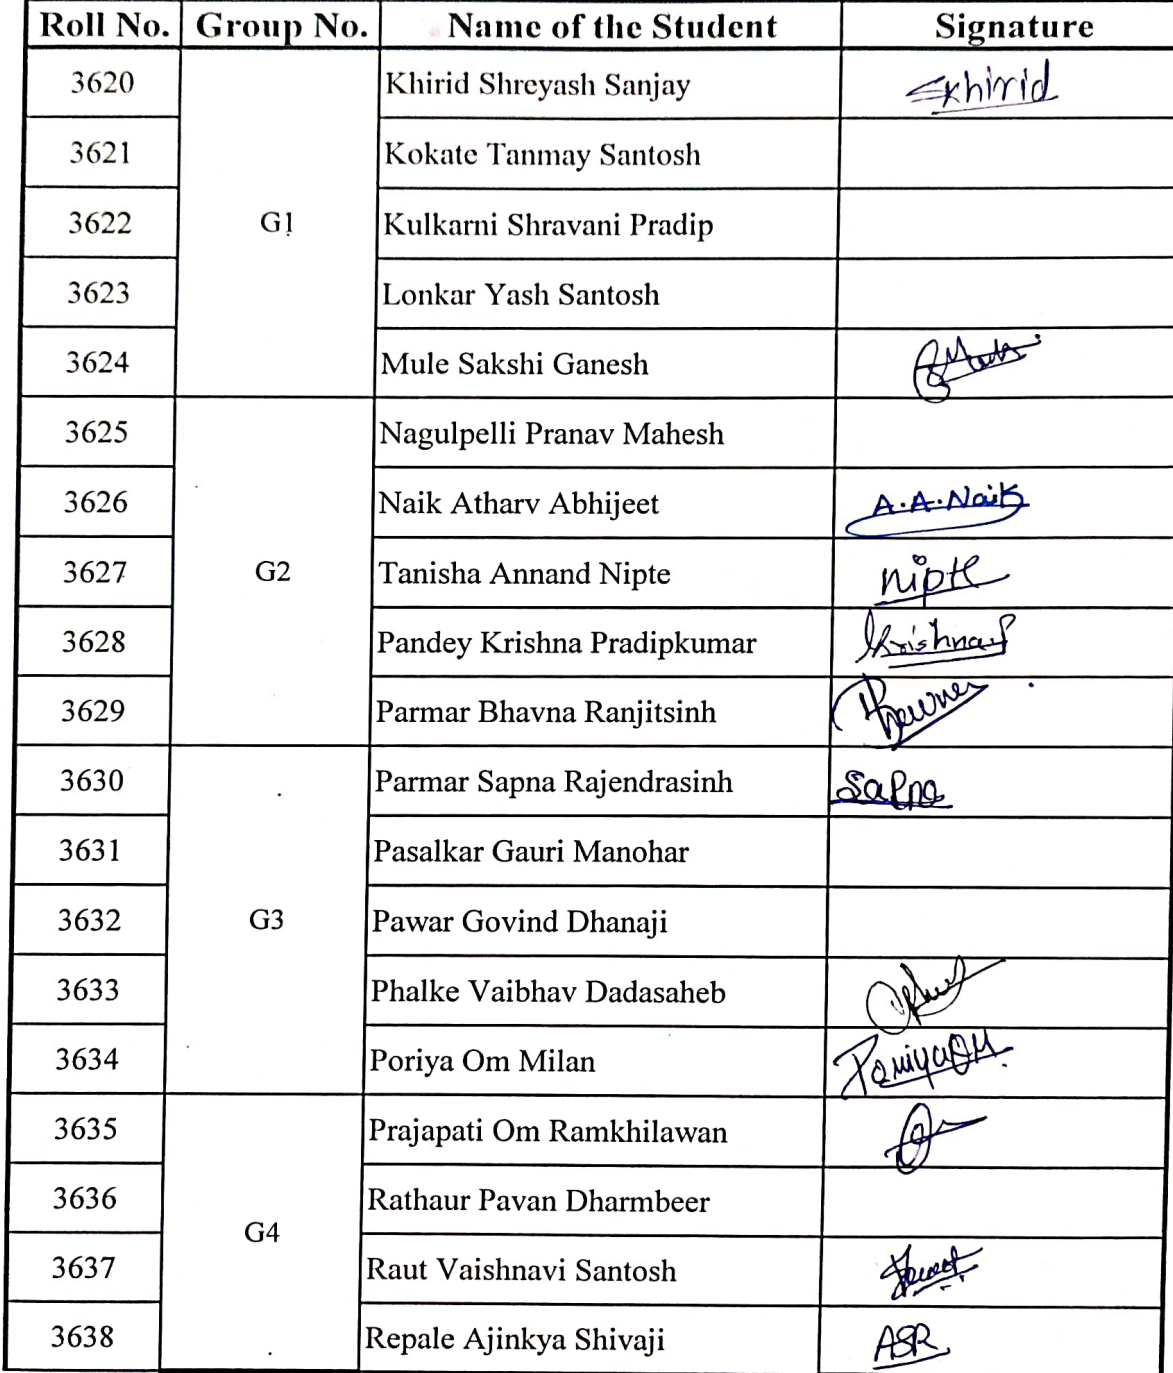 Roll No. Group No. Name of the Student Signature
3620 Khirid Shreyash Sanjay Skhirid
3621 Kokate Tanmay Santosh
3622 G1 Kulkarni Shravani Pradip
3623 Lonkar Yash Santosh
3624 Mule Sakshi Ganesh
3625 Nagulpelli Pranav Mahesh
3626 Naik Atharv Abhijeet A.A.Naik
3627 G2 Tanisha Annand Nipte Nipte
3628 Pandey Krishna Pradipkumar Krishna
3629 Parmar Bhavna Ranjitsinh
3630 Parmar Sapna Rajendrasinh Sapna
3631 Pasalkar Gauri Manohar
3632 G3 Pawar Govind Dhanaji
3633 Phalke Vaibhav Dadasaheb
3634 Poriya Om Milan PoriyaOM.
3635 Prajapati Om Ramkhilawan
3636 Rathaur Pavan Dharmbeer
G4
3637 Raut Vaishnavi Santosh
3638 Repale Ajinkya Shivaji ASR